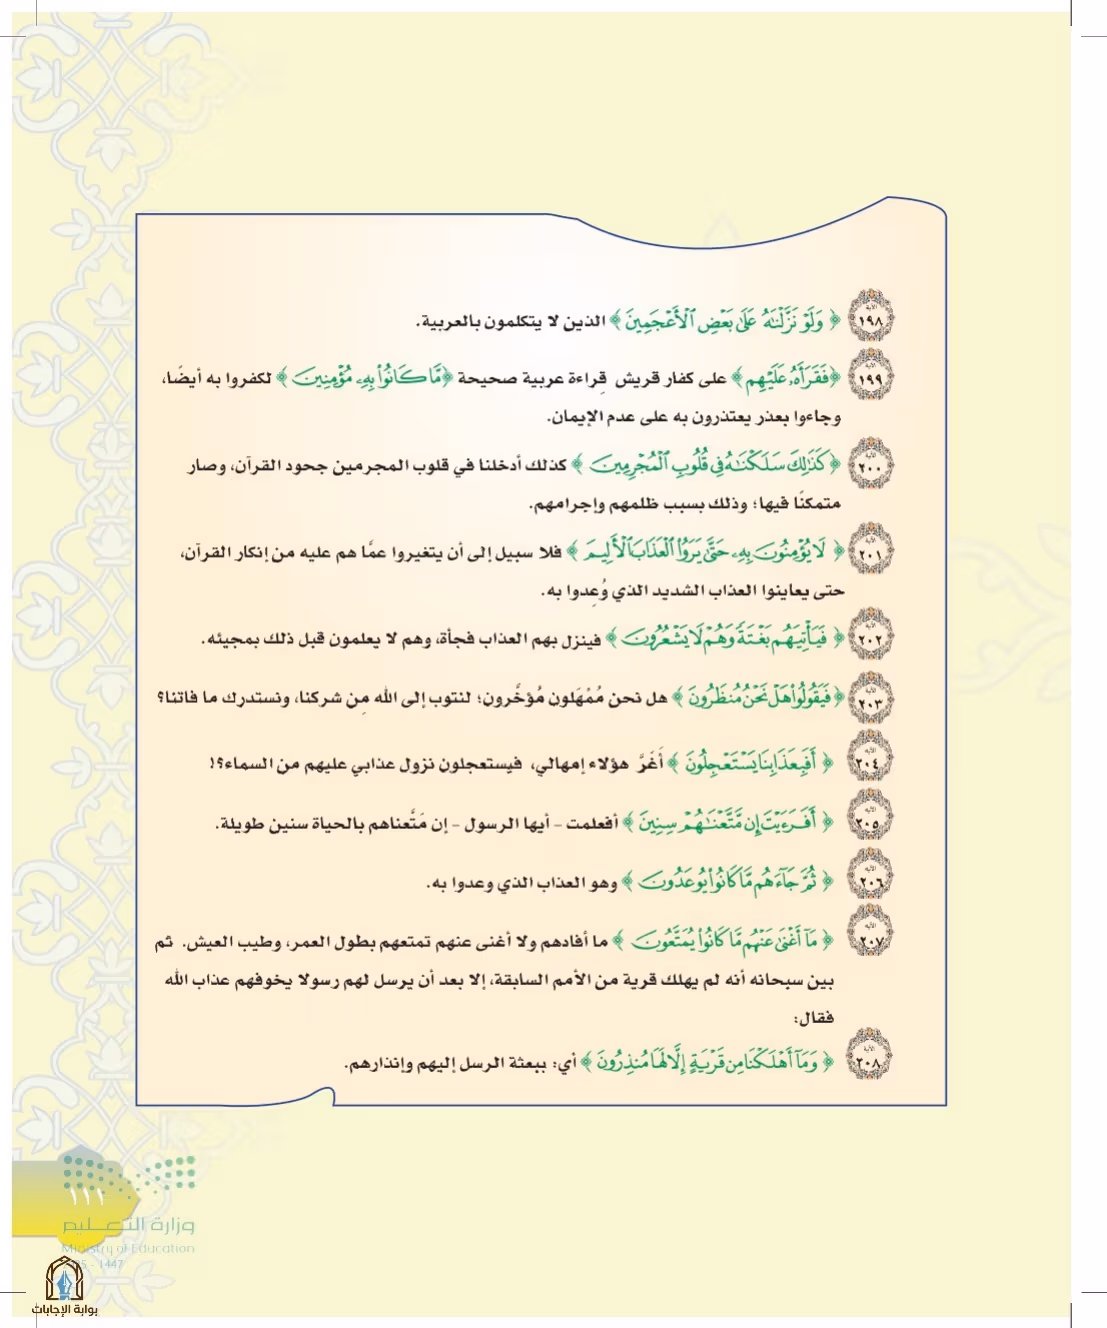 الآية ١٩٨ ﴿ وَلَوْ نَزَّلْنَٰهُ عَلَىٰ بَعْضِ ٱلْأَعْجَمِينَ ﴾ الذين لا يتكلمون بالعربية.
الآية ١٩٩ ﴿فَقَرَأَهُۥ عَلَيْهِم﴾ على كفار قريش قِراءة عربية صحيحة ﴿مَّا كَانُوا۟ بِهِۦ مُؤْمِنِينَ ﴾ لكفروا به أيضًا،
وجاءوا بعذر يعتذرون به على عدم الإيمان.
الآية ٢٠٠ ﴿كَذَٰلِكَ سَلَكْنَٰهُ فِى قُلُوبِ ٱلْمُجْرِمِينَ ﴾ كذلك أدخلنا في قلوب المجرمين جحود القرآن، وصار
متمكنًا فيها؛ وذلك بسبب ظلمهم وإجرامهم.
الآية ٢٠١ ﴿ لَا يُؤْمِنُونَ بِهِۦ حَتَّىٰ يَرَوُا۟ ٱلْعَذَابَ ٱلْأَلِيمَ ﴾ فلا سبيل إلى أن يتغيروا عمَّا هم عليه من إنكار القرآن،
حتى يعاينوا العذاب الشديد الذي وُعِدوا به.
الآية ٢٠٢ ﴿ فَيَأْتِيَهُم بَغْتَةً وَهُمْ لَا يَشْعُرُونَ ﴾ فينزل بهم العذاب فجأة، وهم لا يعلمون قبل ذلك بمجيئه.
الآية ٢٠٣ ﴿ فَيَقُولُوا۟ هَلْ نَحْنُ مُنظَرُونَ ﴾ هل نحن مُمْهَلون مُؤخَّرون؛ لنتوب إلى الله مِن شركنا، ونستدرك ما فاتنا؟
الآية ٢٠٤ ﴿ أَفَبِعَذَابِنَا يَسْتَعْجِلُونَ ﴾ أَغَرَّ هؤلاء إمهالي، فيستعجلون نزول عذابي عليهم من السماء؟!
الآية ٢٠٥ ﴿ أَفَرَءَيْتَ إِن مَّتَّعْنَٰهُمْ سِنِينَ ﴾ أفعلمت - أيها الرسول - إن مَتَّعناهم بالحياة سنين طويلة.
الآية ٢٠٦ ﴿ ثُمَّ جَآءَهُم مَّا كَانُوا۟ يُوعَدُونَ ﴾ وهو العذاب الذي وعدوا به.
الآية ٢٠٧ ﴿ مَآ أَغْنَىٰ عَنْهُم مَّا كَانُوا۟ يُمَتَّعُونَ ﴾ ما أفادهم ولا أغنى عنهم تمتعهم بطول العمر، وطيب العيش. ثم
بين سبحانه أنه لم يهلك قرية من الأمم السابقة، إلا بعد أن يرسل لهم رسولا يخوفهم عذاب الله
فقال:
الآية ٢٠٨ ﴿ وَمَآ أَهْلَكْنَا مِن قَرْيَةٍ إِلَّا لَهَا مُنذِرُونَ ﴾ أي: ببعثة الرسل إليهم وإنذارهم.
١١١
وزارة التعليم
Ministry of Education
1447
بوابة الإجابات